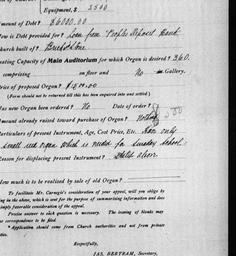 Equipment, $ 2500
Amount of Debt? $6000.00
How is Debt provided for? Loan from Peoples Deposit Bank
Church built of? Brick & Stone
Seating Capacity of Main Auditorium for which Organ is desired? 360
comprising on floor and No in Gallery.
Price of proposed Organ?
(Form should not be returned till this has been enquired into and settled.)
Has new Organ been ordered? No Date of order?
Amount already raised toward purchase of Organ? Nothing
Particulars of present Instrument, Age, Cost Price, Etc. Have only
small reed organ which is needed for Sunday School
Reason for displacing present Instrument?
How much is to be realized by sale of old Organ?
To facilitate Mr. Carnegie's consideration of your appeal, will you oblige by
in the above, which is sent for the purpose of summarizing information and does
imply favorable consideration of the appeal.
Precise answer to each question is necessary. The issuing of blanks may
no correspondence to be filed.
Application should come from Church authorities and not from private
Respectfully,
JAS. BERTRAM, Secretary,